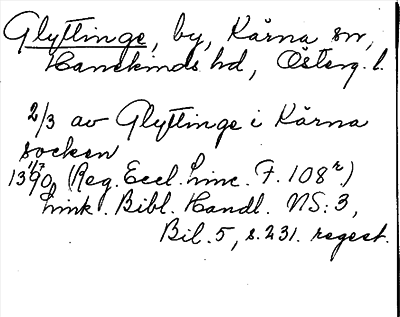 Glyttinge, by, Kärna sn,
Hanekinds hd, Österg. l.
2/3 av Glyttinge i Kärna
socken
1390 1/7 (Reg. Eccl. Linc. F. 108r)
Link. Bibl. Handl. NS: 3,
Bil. 5, s. 231. regest.